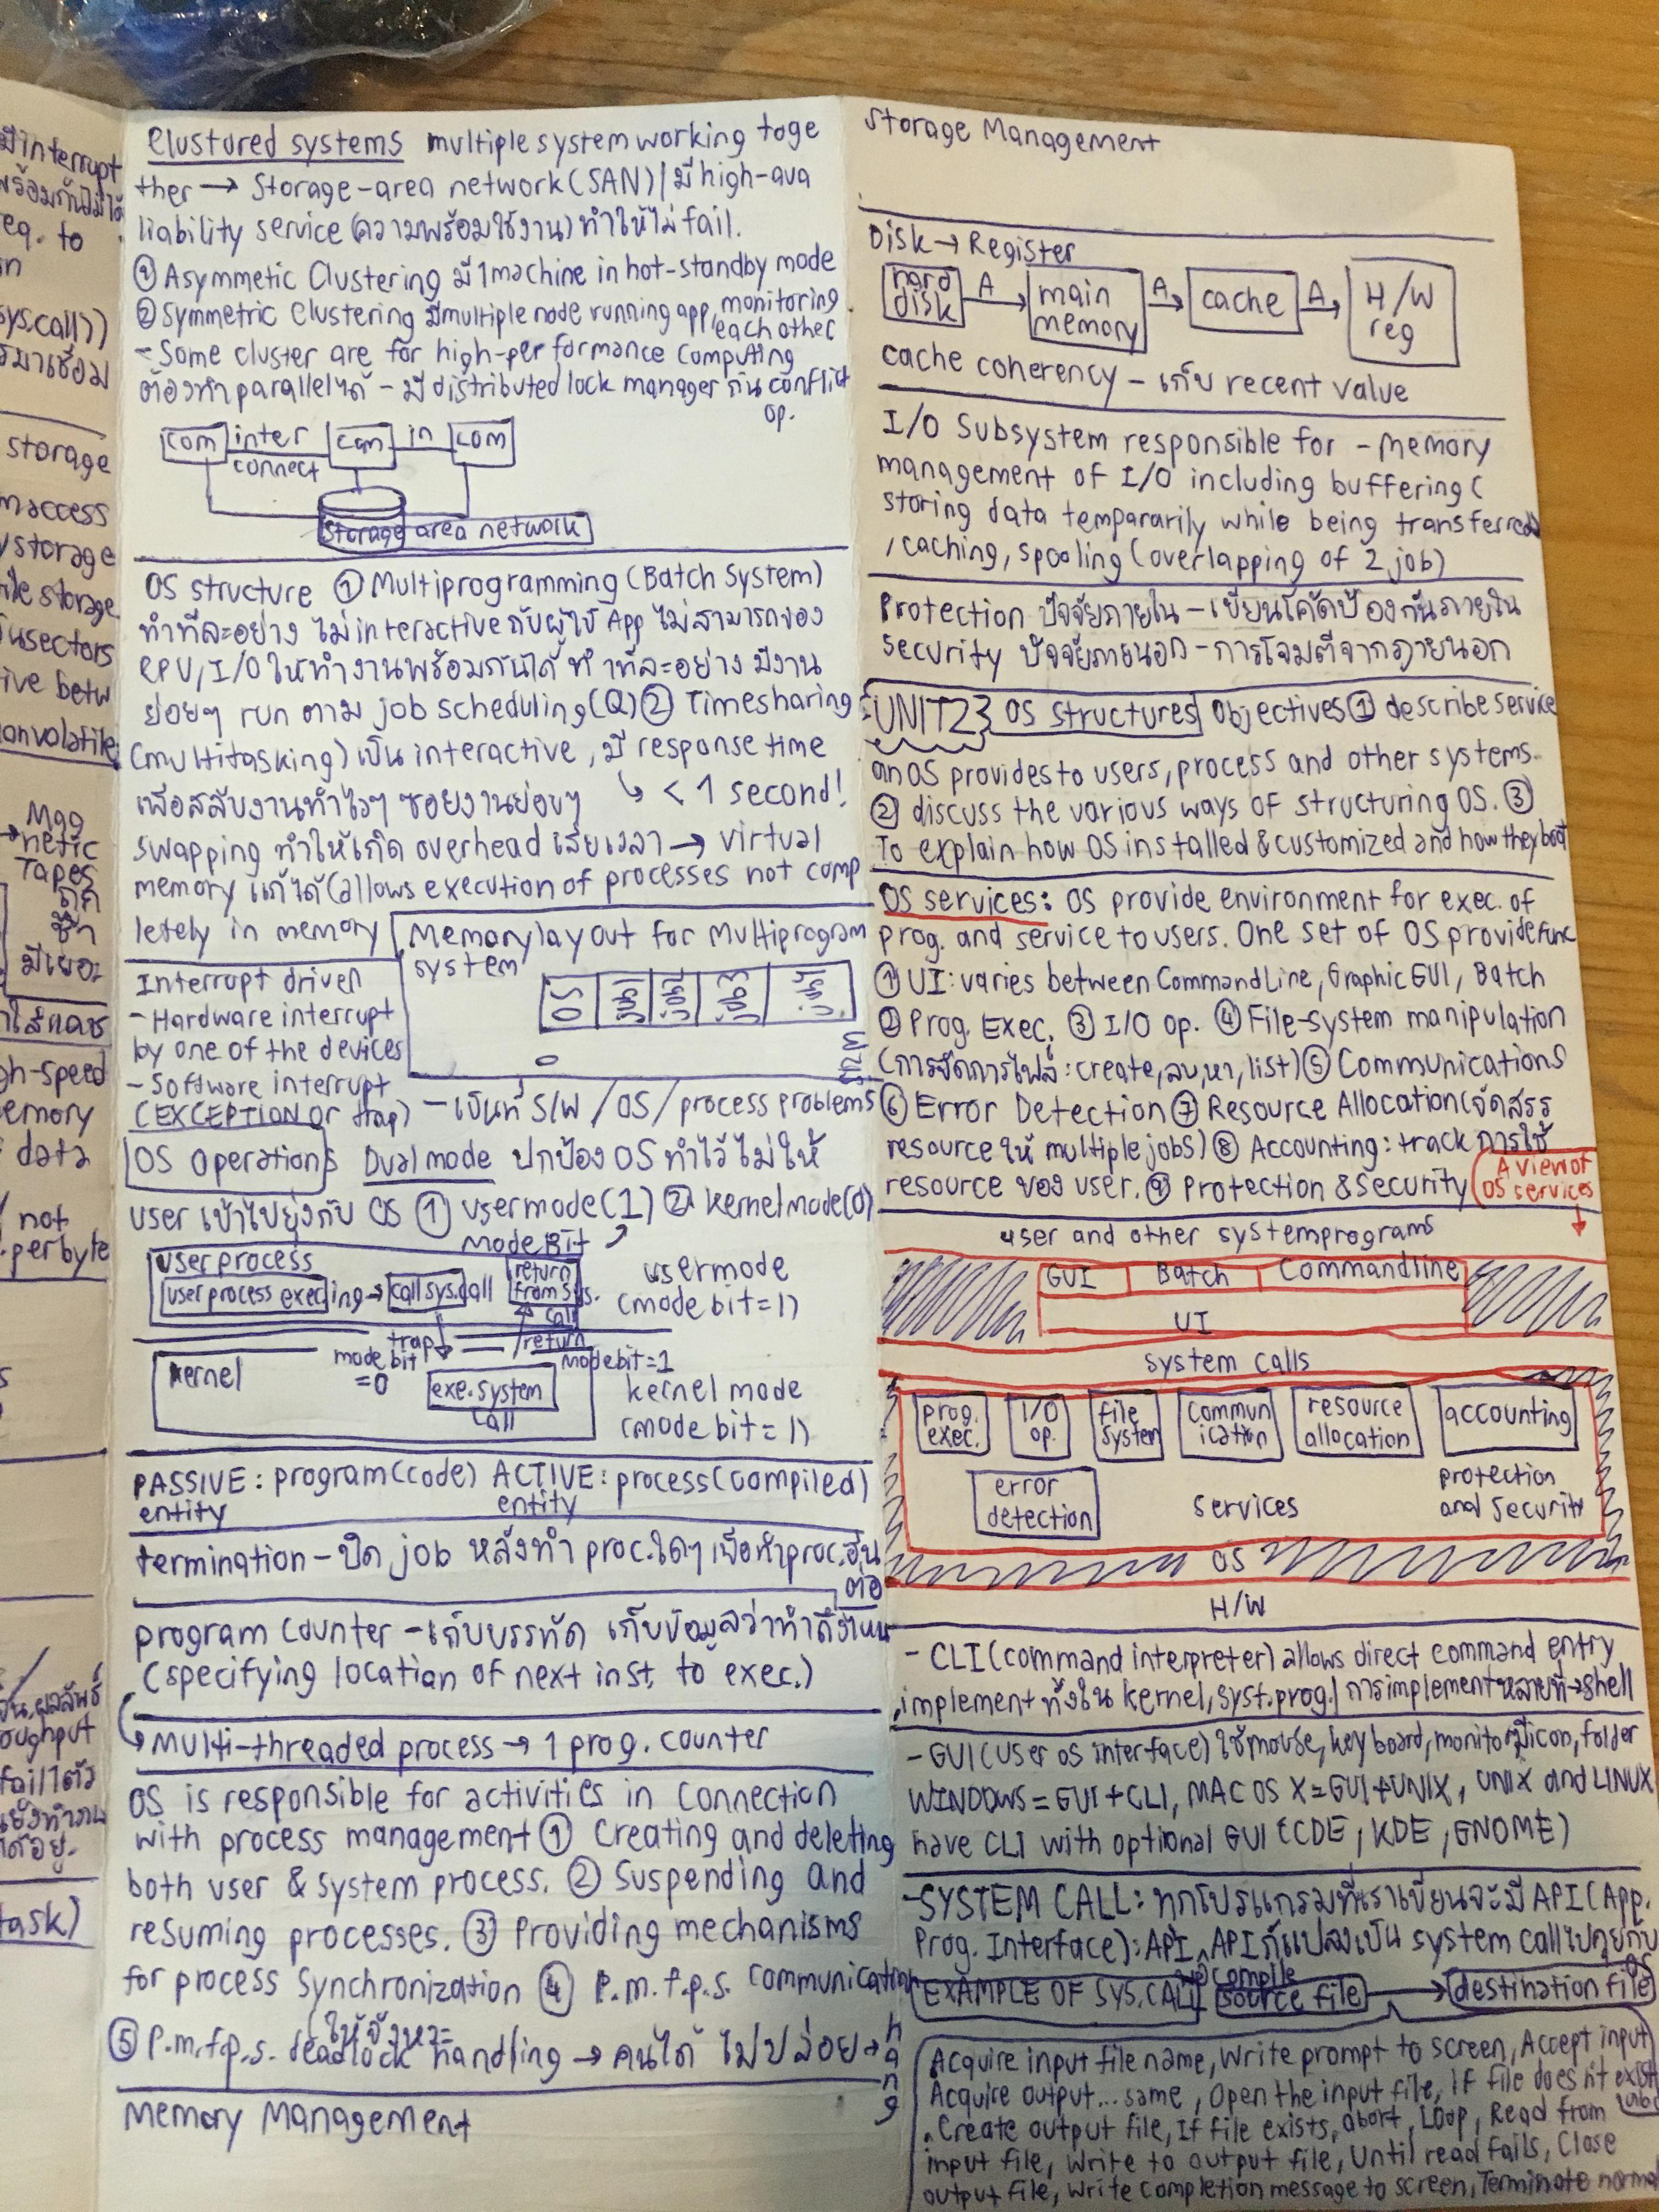 มี interrupt
eq. to
sys.call))
storage
m access
storage
file storage
sectors
tive betw
onvolatile
Mag
netic
Tapes
ถูก
ช้า
มีเยอะ
gh-speed
emory
data
not
per byte
oughput
task)
Clustured systems multiple system working toge
ther → Storage-area network (SAN) / มี high-ava
liability service (ความพร้อมใช้งาน) ทำให้ไม่ fail.
① Asymmetic Clustering มี 1 machine in hot-standby mode
② Symmetric Clustering มี multiple node running app, monitoring
each other
- Some cluster are for high-performance computing
ต้องทำ parallel ได้ - มี distributed lock manager กัน conflict
op.
com inter com in com
connect
storage area network
OS structure ① Multiprogramming (Batch System)
ทำทีละอย่าง ไม่ interactive กับผู้ใช้ App ไม่สามารถจอง
CPU, I/O ให้ทำงานพร้อมกันได้ ทำทีละอย่าง มีงาน
ย่อยๆ run ตาม job scheduling (Q) ② Timesharing
(multitasking) เป็น interactive, มี response time
เพื่อสลับงานทำไวๆ ซอยงานย่อยๆ ↳ < 1 second!
swapping ทำให้เกิด overhead เสียเวลา → virtual
memory แก้ได้ (allows execution of processes not comp
letely in memory
Memory layout for Multiprogram
system
OS job1 job2 job3 job4
0
512M
Interrupt driven
- Hardware interrupt
by one of the devices
- Software interrupt
(EXCEPTION or trap) - เป็นที่ S/W / OS / process problems
OS Operations Dual mode ปกป้อง OS ทำไว้ไม่ให้
user เข้าไปยุ่งกับ OS ① user mode (1) ② kernel mode (0)
Mode Bit
user process
user process executing → call sys.call
return
from sys.
call
user mode
(mode bit = 1)
trap
mode bit
= 0
return
mode bit = 1
kernel
exe. system
call
kernel mode
(mode bit = 1)
PASSIVE : program (code) ACTIVE : process (compiled)
entity entity
termination - ปิด job หลังทำ proc. ใดๆ เพื่อทำ proc. อื่น
ต่อ
program counter - เก็บบรรทัด เก็บข้อมูลว่าทำถึงไหน
(specifying location of next inst. to exec.)
↳ Multi-threaded process → 1 prog. counter
OS is responsible for activities in connection
with process management ① Creating and deleting
both user & system process. ② Suspending and
resuming processes. ③ Providing mechanisms
for process synchronization ④ P.m.f.p.s. communication
ให้จังหวะ
⑤ P.m.f.p.s. deadlock handling → คนได้ ไม่ปล่อย → hang
Memory Management
Storage Management
Disk → Register
hard disk A → main memory A → cache A → H/W reg
cache coherency - เก็บ recent value
I/O Subsystem responsible for - Memory
management of I/O including buffering (
storing data tempararily while being transferred
, caching, spooling (overlapping of 2 job)
Protection ปัจจัยภายใน - เขียนโค้ดป้องกันภายใน
Security ปัจจัยภายนอก - การโจมตีจากภายนอก
UNIT 2 OS structures Objectives ① describe service
an OS provides to users, process and other systems.
② discuss the various ways of structuring OS. ③
To explain how OS installed & customized and how they boot
OS services: OS provide environment for exec. of
prog. and service to users. One set of OS provide func
① UI : varies between CommandLine, Graphic GUI, Batch
② Prog. Exec. ③ I/O op. ④ File-system manipulation
(การจัดการไฟล์ : create, ลบ, หา, list) ⑤ Communications
⑥ Error Detection ⑦ Resource Allocation (จัดสรร
resource ให้ multiple jobs) ⑧ Accounting : track การใช้
resource ของ user. ⑨ Protection & Security
A view of
OS services
user and other system programs
GUI Batch Commandline
UI
system calls
prog. exec. I/O op. file system communication resource allocation accounting
error detection services protection and security
OS
H/W
- CLI (command interpreter) allows direct command entry
implement ทั้งใน kernel, syst.prog. / การ implement หลายที่ → shell
- GUI (User OS interface) ใช้ mouse, keyboard, monitor มี icon, folder
WINDOWS = GUI + CLI, MAC OS X = GUI + UNIX, UNIX and LINUX
have CLI with optional GUI (CDE, KDE, GNOME)
- SYSTEM CALL : ทุกโปรแกรมที่เราเขียนจะมี API (App.
Prog. Interface) : API, API ก็แปลงเป็น system call ไปคุยกับ
OS
compile
EXAMPLE OF SYS.CALL source file → destination file
Acquire input file name, Write prompt to screen, Accept input
Acquire output... same, Open the input file, If file does n't exist
Create output file, If file exists, abort, Loop, Read from
input file, Write to output file, Until read fails, Close
output file, Write completion message to screen, Terminate normal